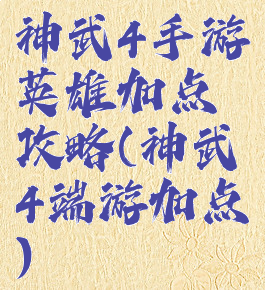 神武4手游
英雄加点
攻略(神武
4端游加点
)